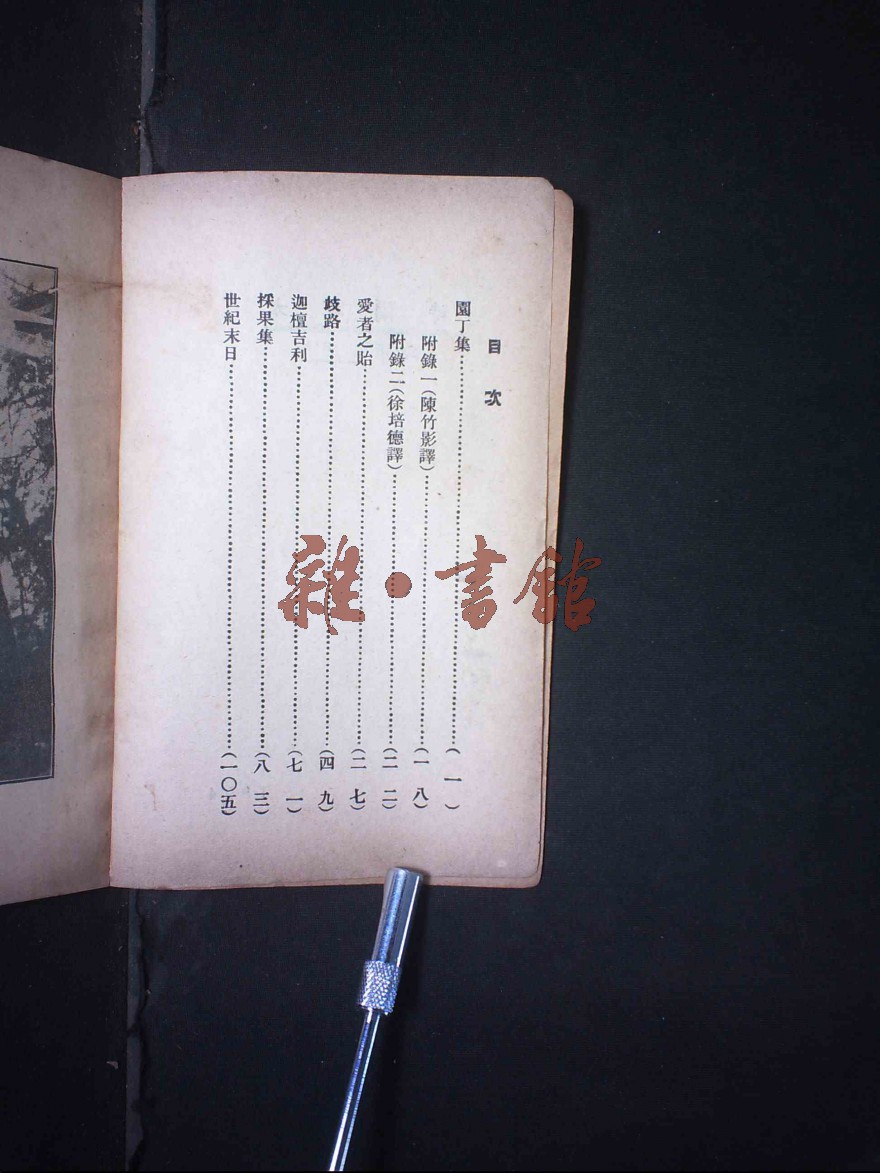 目次
園丁集……(一)
附錄一(陳竹影譯)……(一八)
附錄二(徐培德譯)……(二二)
愛者之貽……(二七)
歧路……(四九)
迦檀吉利……(七一)
採果集……(八三)
世紀末日……(一〇五)
雜·書館